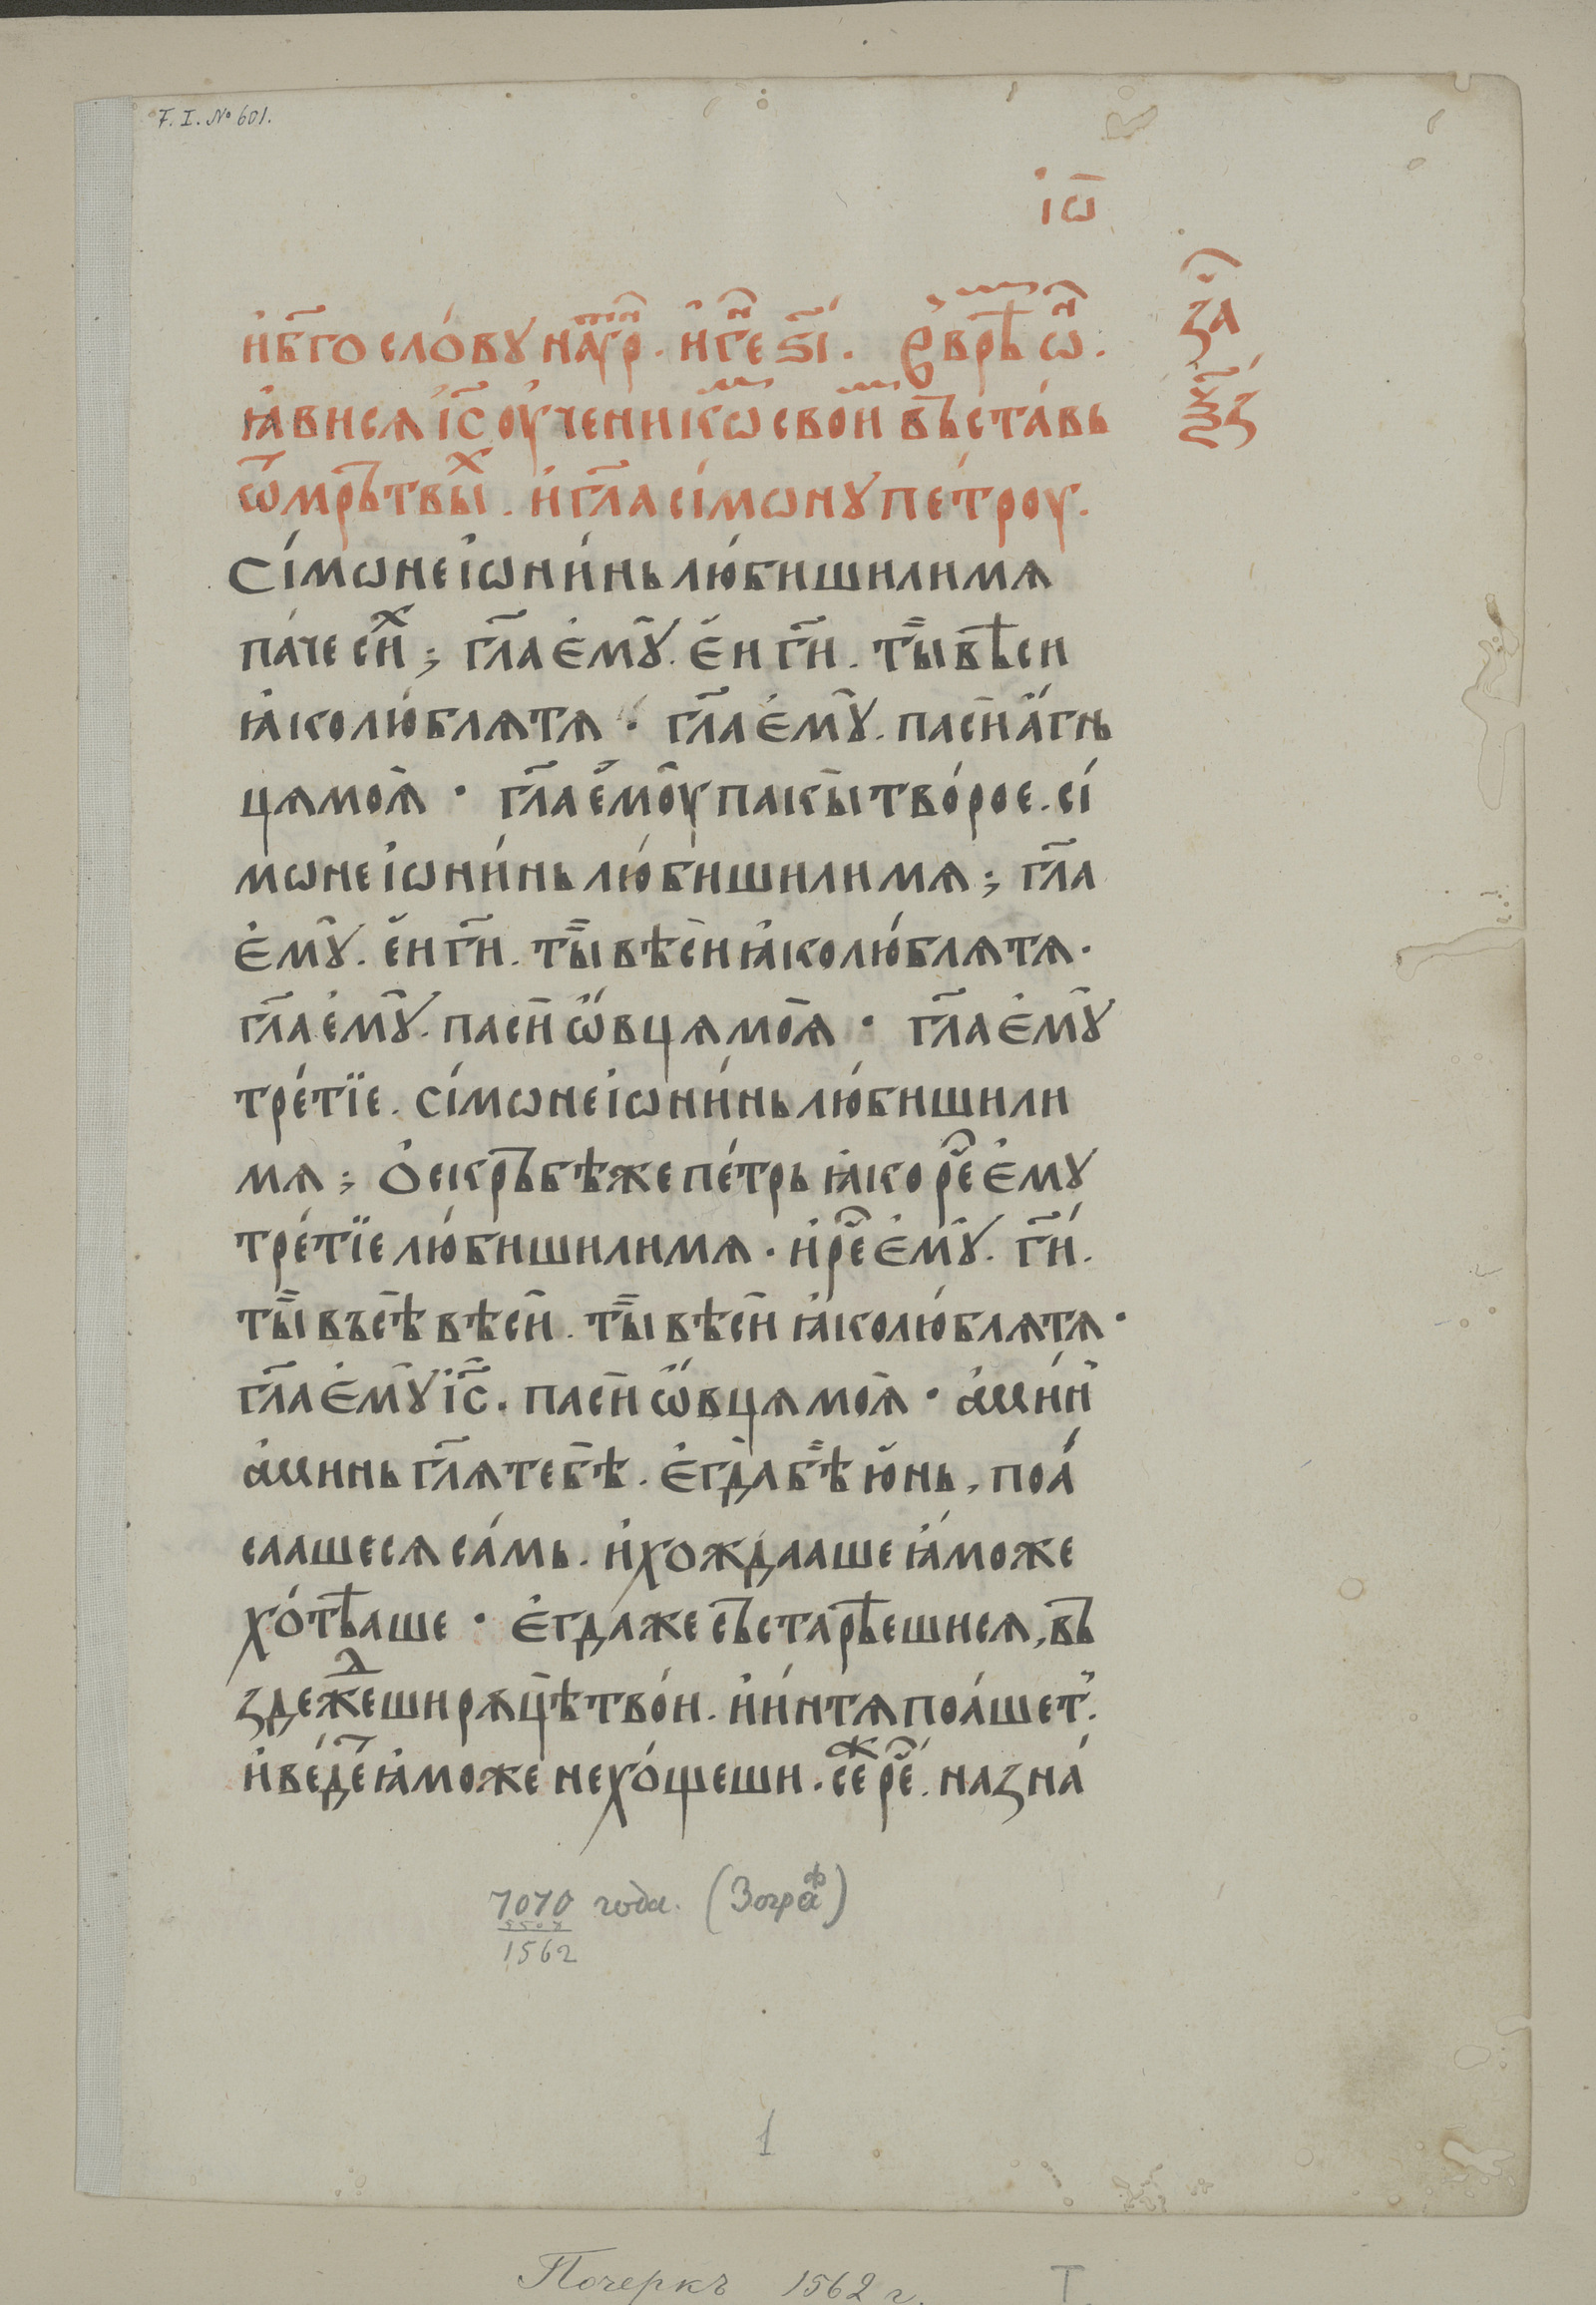 F. I. № 601.
і҆ѡ҃
за҃
ѯ҃з
и҆б҃гословꙋ наⷩ҇гр. и҆ гл҃е ѕ҃і. В врѣⷨ ѡ҆ⷩ.
ꙗ҆висѧ і҆с҃ оу҆ченикѡⷨ своиⷨ въставь
ѿ мрьтвыⷯ. и҆ гл҃а сі́мѡнꙋ пе́троу.
Сі́мѡне і҆ѡни́нь лю́биши ли мѧ
па́че сиⷯ; гл҃а є҆мꙋ̀. є҆и гд҃и. ты̀ вѣси
ꙗ҆ко лю́блѧ тѧ · гл҃а є҆мꙋ̀. паси а҆́гнь
цѧ моѧ̀ · гл҃а є҆моу̀ пакы̀ тво́рое. сі́
мѡне і҆ѡни́нь лю́биши ли мѧ; гл҃а
є҆мꙋ̀. є҆и гд҃и. ты̀ вѣси ꙗ҆ко лю́блѧ тѧ.
гл҃а є҆мꙋ̀. паси ѡ҆́вцѧ моѧ̀ · гл҃а є҆мꙋ̀
тре́тїе. сі́мѡне і҆ѡни́нь лю́биши ли
мѧ; О҆скръбѣ же пе́трь ꙗ҆ко реⷱ҇ є҆мꙋ
тре́тїе лю́биши ли мѧ · и҆ реⷱ҇ є҆мꙋ̀. гд҃и.
ты̀ въсѣ вѣси. ты̀ вѣси ꙗ҆ко лю́блѧ тѧ ·
гл҃а є҆мꙋ̀ і҆с҃. паси ѡ҆́вцѧ моѧ̀ · а҆ми́н
а҆минь гл҃ѧ тебѣ. є҆гда̀ бѣ̀ ю҆́нь, поа́
саашесѧ са́мь. и҆ хождааше ꙗ҆́може
хо́тѣаше · є҆гда́же състарѣешисѧ, въ
здежⷣеши рѫцѣ тво́и. и҆ и́н тѧ поа́шеть.
и҆ веде́ ꙗ҆́може не хо́щеши. сеⷤ реⷱ҇. назна́
7070 года. (Зограⷴ)
5508
1562
1
Почеркъ 1562 г. Т